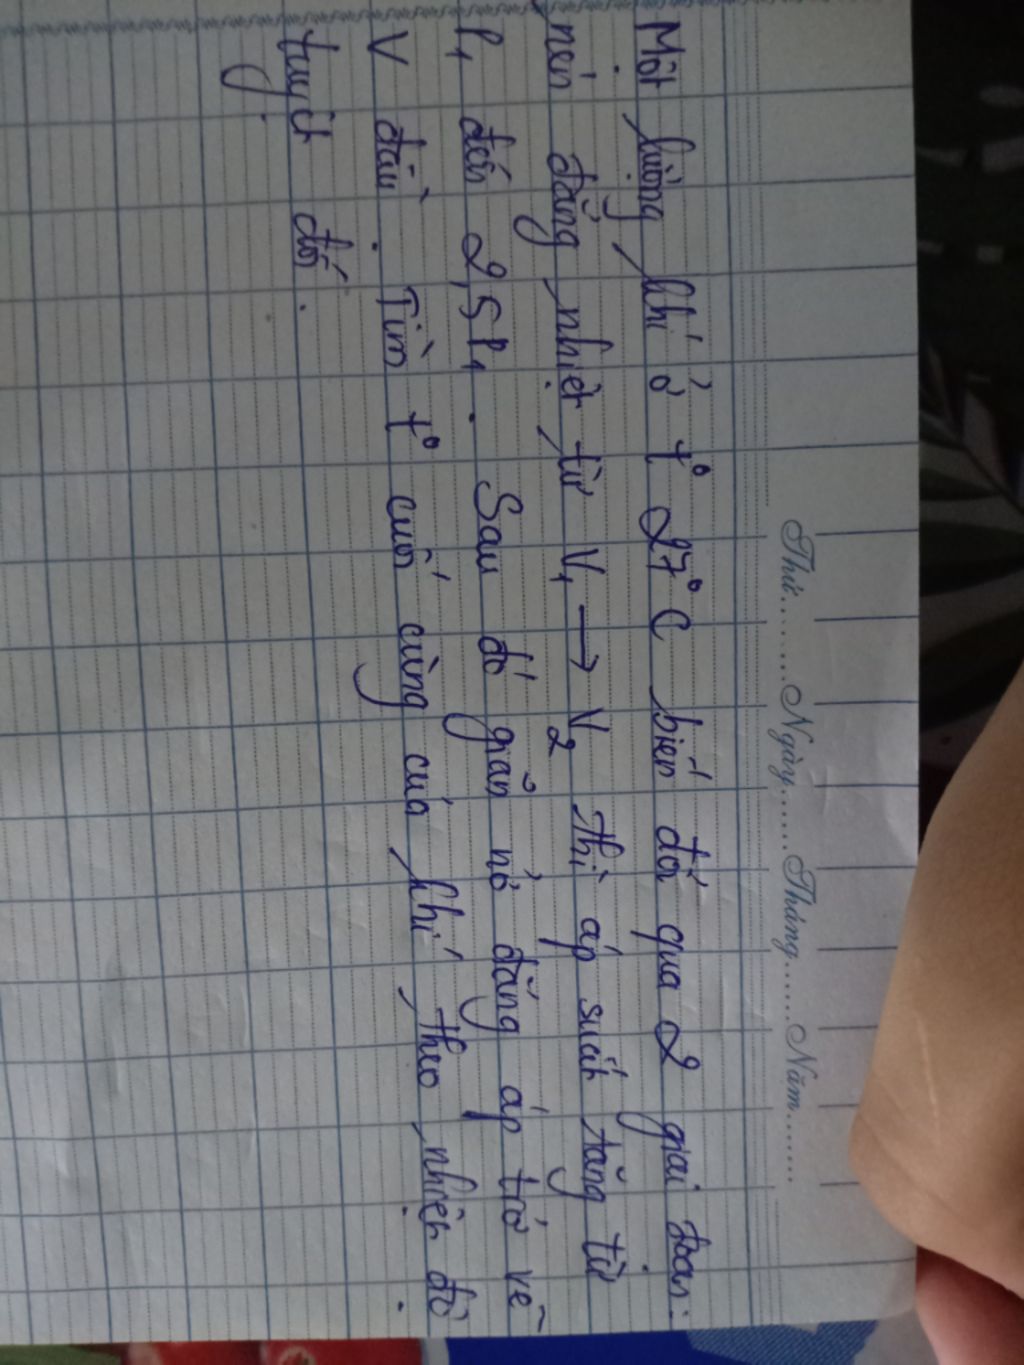 Thứ......Ngày.....Tháng......Năm.......
Một lượng khí ở t° 27°C biến đổi qua 2 giai đoạn:
nén đẳng nhiệt từ V₁ → V₂ thì áp suất tăng từ
P₁ đến 2,5P₁. Sau đó giản nở đẳng áp trở về
V đầu. Tìm t° cuối cùng của khí theo nhiệt độ
tuyệt đối.